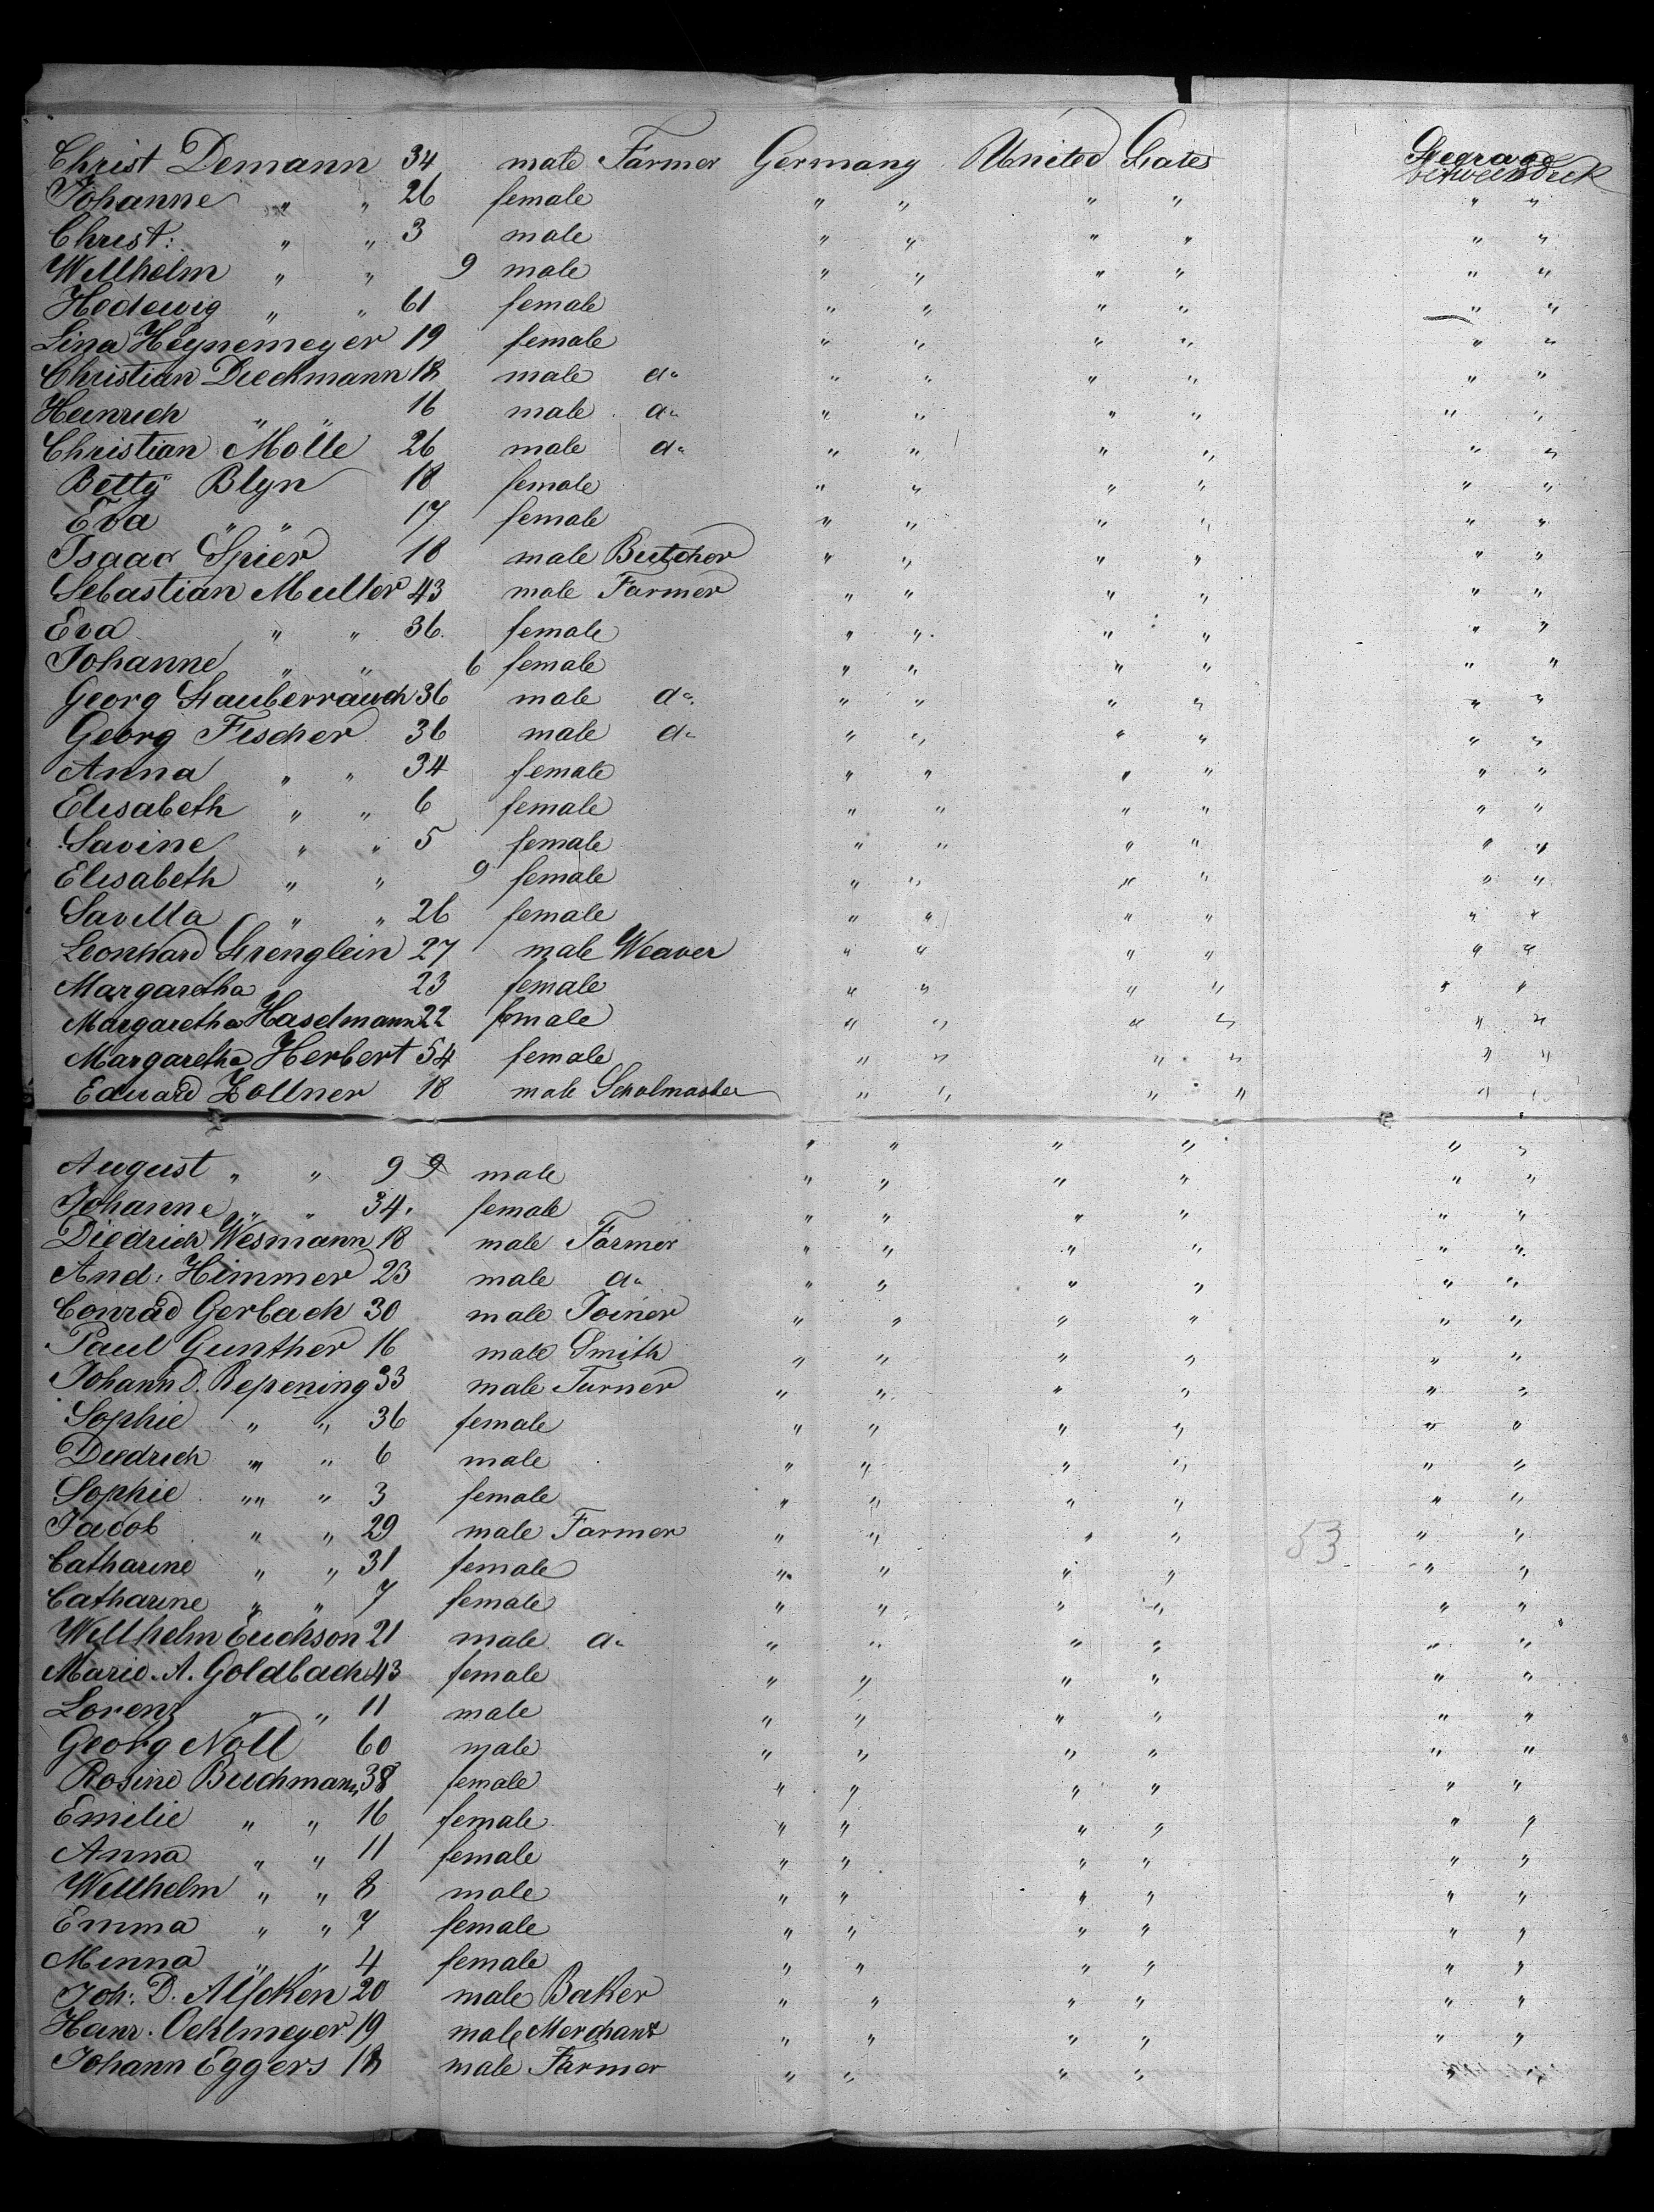 Christ Demann 34 male Farmer Germany United States Steerage betweendeck
Johanne " " 26 female " " " " " "
Christ: " " 3 male " " " " " "
Willhelm " " 9 male " " " " " "
Hedewig " " 61 female " " " " " "
Lina Heynemeyer 19 female " " " " " "
Christian Dieckmann 18 male do " " " " " "
Heinrich " " 16 male do " " " " " "
Christian Molle 26 male do " " " " " "
Betty Blyn 18 female " " " " " "
Eva " " 17 female " " " " " "
Isaac Spier 18 male Butcher " " " " " "
Sebastian Muller 43 male Farmer " " " " " "
Eva " " 36 female " " " " " "
Johanne " " 6 female " " " " " "
Georg Stauberrauch 36 male do " " " " " "
Georg Fischer 36 male do " " " " " "
Anna " " 34 female " " " " " "
Elisabeth " " 6 female " " " " " "
Savine " " 5 female " " " " " "
Elisabeth " " 9 female " " " " " "
Savilla " " 26 female " " " " " "
Leonhard Strenglein 27 male Weaver " " " " " "
Margaretha 23 female " " " " " "
Margaretha Haselmann 22 female " " " " " "
Margaretha Herbert 54 female " " " " " "
Eduard Zollner 18 male Scholmaster " " " " " "
" " " " " "
August " " 9 9 male " " " " " "
Johanne " " 34 female " " " " " "
Diedrich Wesmann 18 male Farmer " " " " " "
And: Himmer 23 male do " " " " " "
Conrad Gerbach 30 male Joiner " " " " " "
Paul Gunther 16 male Smith " " " " " "
Johann D. Repening 33 male Turner " " " " " "
Sophie " " 36 female " " " " " "
Diedrich " " 6 male " " " " " "
Sophie " " 3 female " " " " " "
Jacob " " 29 male Farmer " " " " 53 " "
Catharine " " 31 female " " " " " "
Catharine " " 7 female " " " " " "
Willhelm Euchson 21 male do " " " " " "
Marie. A. Goldbach 43 female " " " " " "
Lorenz " " 11 male " " " " " "
Georg Noll 60 male " " " " " "
Rosine Buchmann 38 female " " " " " "
Emilie " " 16 female " " " " " "
Anna " " 11 female " " " " " "
Willhelm " " 8 male " " " " " "
Emma " " 7 female " " " " " "
Minna " " 4 female " " " " " "
Joh: D. Alfcken 20 male Baker " " " " " "
Heinr. Oehlmeyer 19 male Merchant " " " " " "
Johann Eggers 18 male Farmer " " " " " "